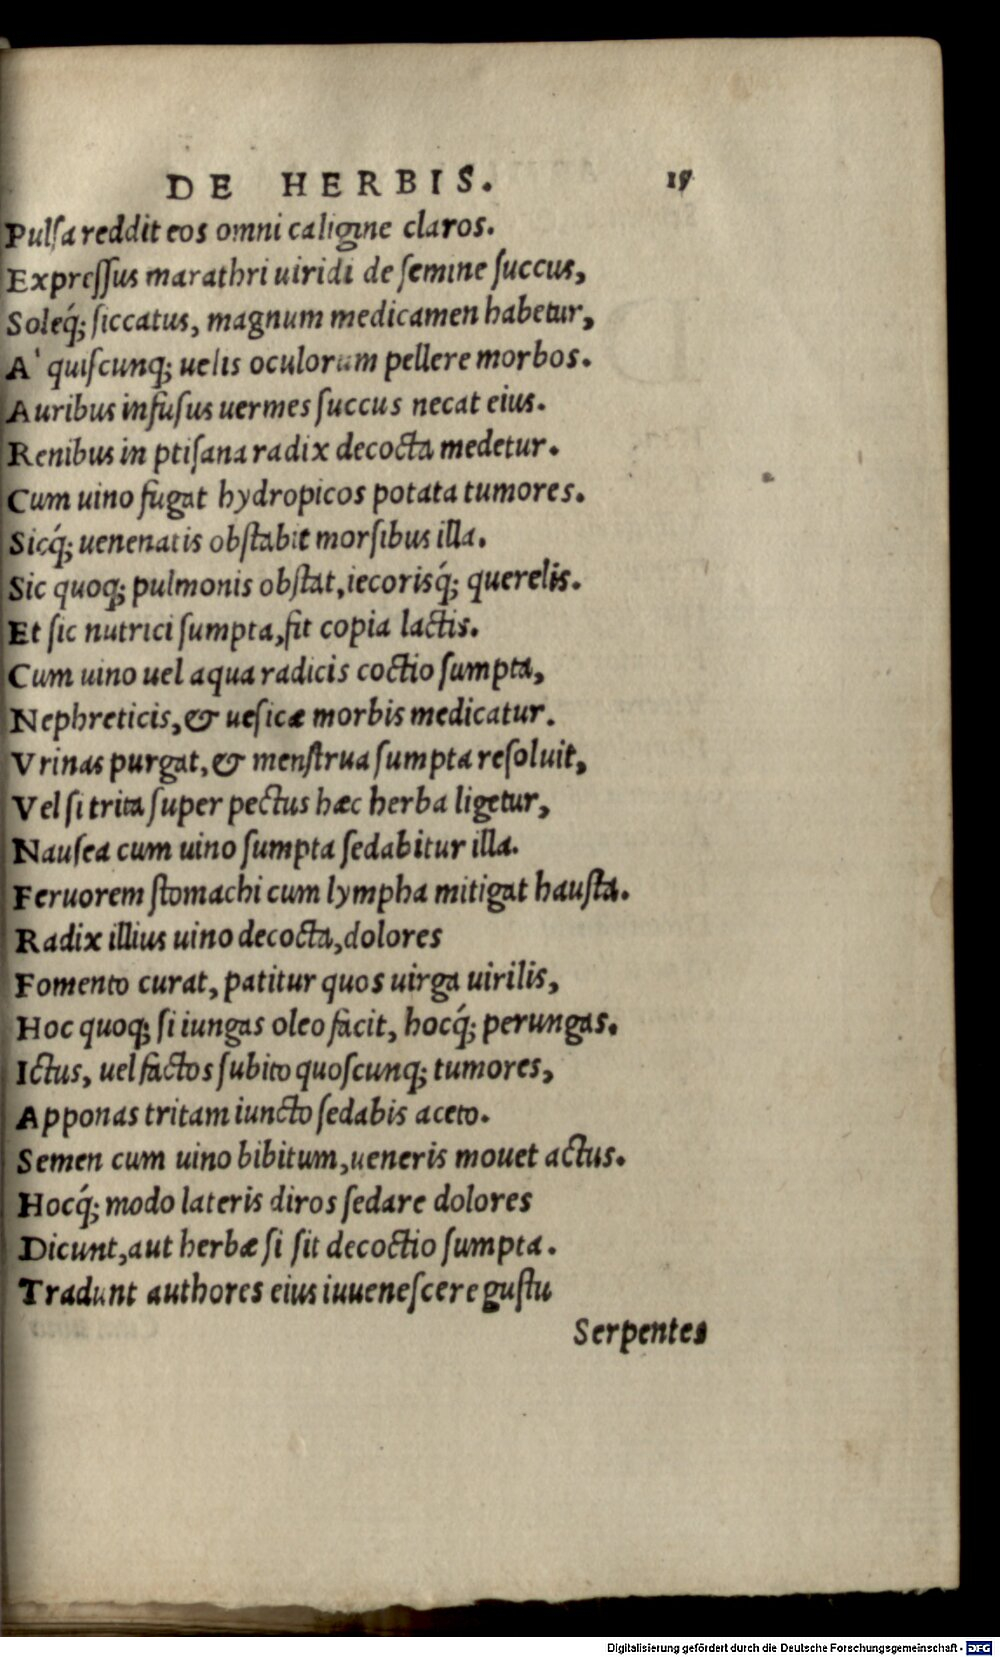 DE HERBIS. 19
Pulſa reddit eos omni caligine claros.
Expreſſus marathri uiridi de ſemine ſuccus,
Soleq́; ſiccatus, magnum medicamen habetur,
A' quiſcunq; uelis oculorum pellere morbos.
Auribus infuſus uermes ſuccus necat eius.
Renibus in ptiſana radix decocta medetur.
Cum uino fugat hydropicos potata tumores.
Sicq́; uenenatis obſtabit morſibus illa.
Sic quoq; pulmonis obſtat, iecorisq́; querelis.
Et ſic nutrici ſumpta, fit copia lactis.
Cum uino uel aqua radicis coctio ſumpta,
Nephreticis, & ueſicæ morbis medicatur.
Vrinas purgat, & menſtrua ſumpta reſoluit,
Vel ſi trita ſuper pectus hæc herba ligetur,
Nauſea cum uino ſumpta ſedabitur illa.
Feruorem ſtomachi cum lympha mitigat hauſta.
Radix illius uino decocta, dolores
Fomento curat, patitur quos uirga uirilis,
Hoc quoq; ſi iungas oleo facit, hocq́; perungas.
Ictus, uel factos ſubito quoſcunq; tumores,
Apponas tritam iuncto ſedabis aceto.
Semen cum uino bibitum, ueneris mouet actus.
Hocq́; modo lateris diros ſedare dolores
Dicunt, aut herbæ ſi ſit decoctio ſumpta.
Tradunt authores eius iuueneſcere guſtu
Serpentes
Digitalisierung gefördert durch die Deutsche Forschungsgemeinschaft - DFG